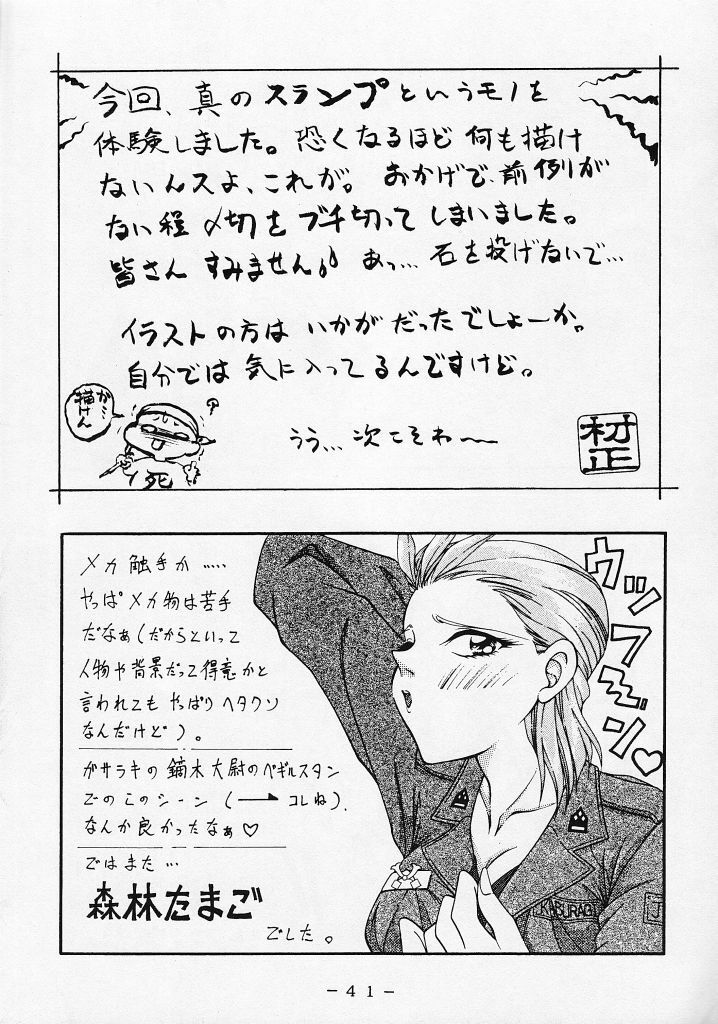 今回、真のスランプというモノを
体験しました。恐くなるほど何も描け
ないんスよ、これが。おかげで、前例が
ない程〆切をブチ切ってしまいました。
皆さんすみません♪あっ…石を投げないで…
イラストの方はいかがだったでしょーか。
自分では気に入ってるんですけど。
が…
描けん
うう…次こそわ〜
死
村正
メカ触手か……
やっぱメカ物は苦手
だなぁ(だからといって
人物や背景だって得意かと
言われてもやっぱりヘタクソ
なんだけど)。
ガサラキの鏑木大尉のベギルスタン
でのこのシーン(→コレね)、
なんか良かったなぁ♡
ではまた…
森林たまご
でした。
ウッフ〜ン♡
KABURAGI
J
-41-